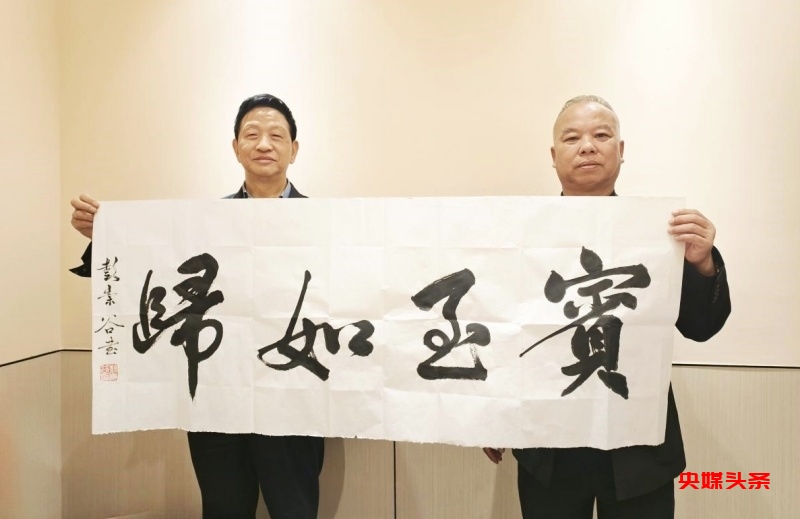 賓至如歸
彭崇谷书
央媒头条